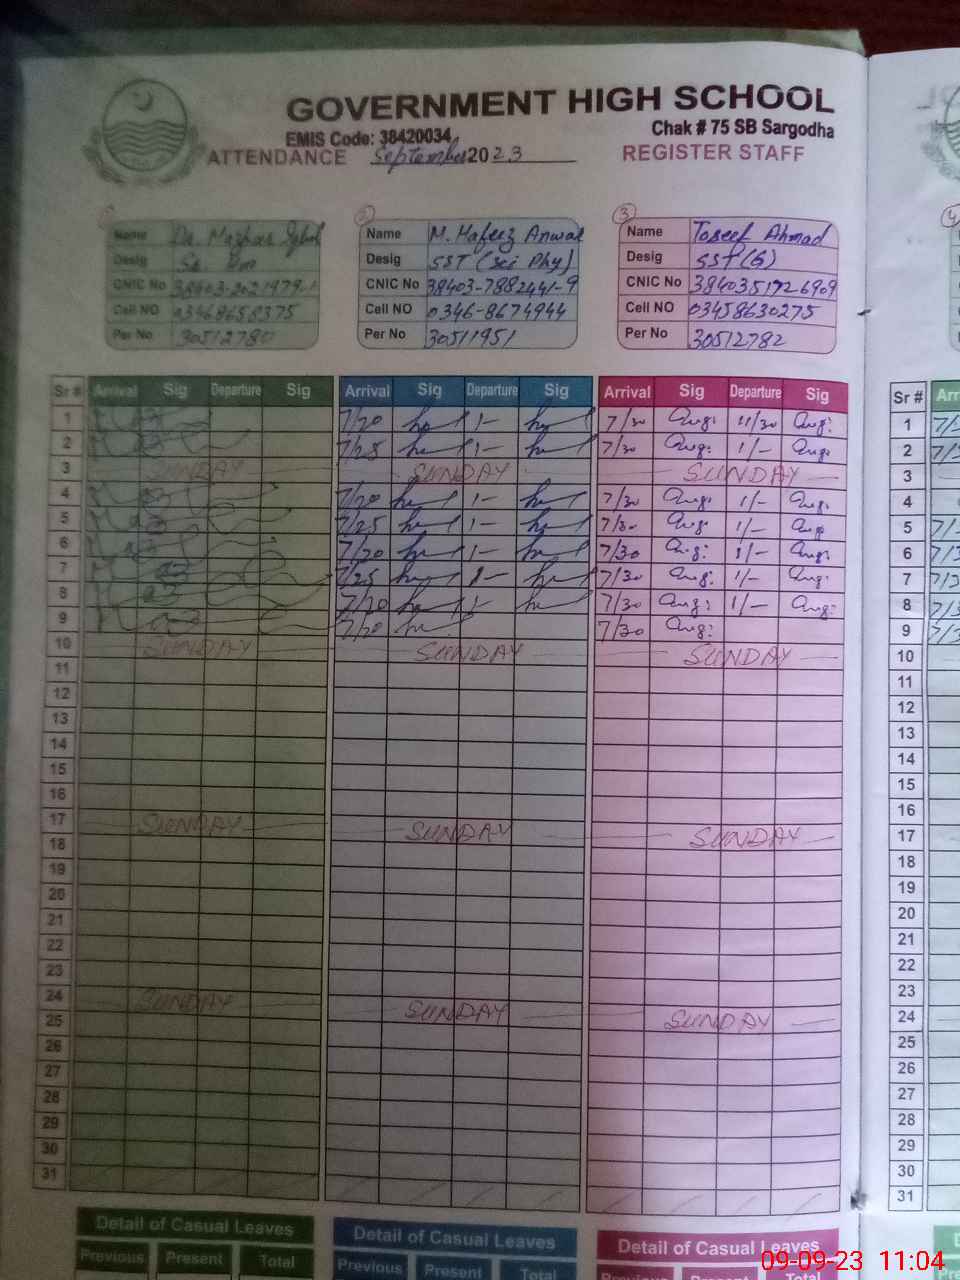 GOVERNMENT HIGH SCHOOL
EMIS Code: 38420034
Chak # 75 SB Sargodha
ATTENDANCE September 2023 REGISTER STAFF
1
Name Dr. Mazhar Iqbal
Desig
CNIC No
Cell NO 03468658375
Per No 30512780
2
Name M. Hafeez Anwar
Desig SST (Sci Phy)
CNIC No 38403-7882441-9
Cell NO 0346-8674944
Per No 30511951
3
Name Toseef Ahmad
Desig SST (G)
CNIC No 3840351726909
Cell NO 03458630275
Per No 30512782
4
Sr # Arrival Sig Departure Sig Arrival Sig Departure Sig Arrival Sig Departure Sig Sr # Arr
1 7/20 1- 7/30 11/30 1
2 7/25 1- 7/30 1/- 2
3 SUNDAY SUNDAY SUNDAY 3
4 7/20 1- 7/30 1/- 4
5 7/25 1- 7/30 1/- 5
6 7/20 1- 7/30 1/- 6
7 7/25 1- 7/30 1/- 7
8 7/20 1- 7/30 1/- 8
9 7/20 7/30 9
10 SUNDAY SUNDAY SUNDAY 10
11 11
12 12
13 13
14 14
15 15
16 16
17 SUNDAY SUNDAY SUNDAY 17
18 18
19 19
20 20
21 21
22 22
23 23
24 SUNDAY SUNDAY SUNDAY 24
25 25
26 26
27 27
28 28
29 29
30 30
31 31
Detail of Casual Leaves Detail of Casual Leaves Detail of Casual Leaves
Previous Present Total Previous Present Total Previous Present Total
09-09-23 11:04